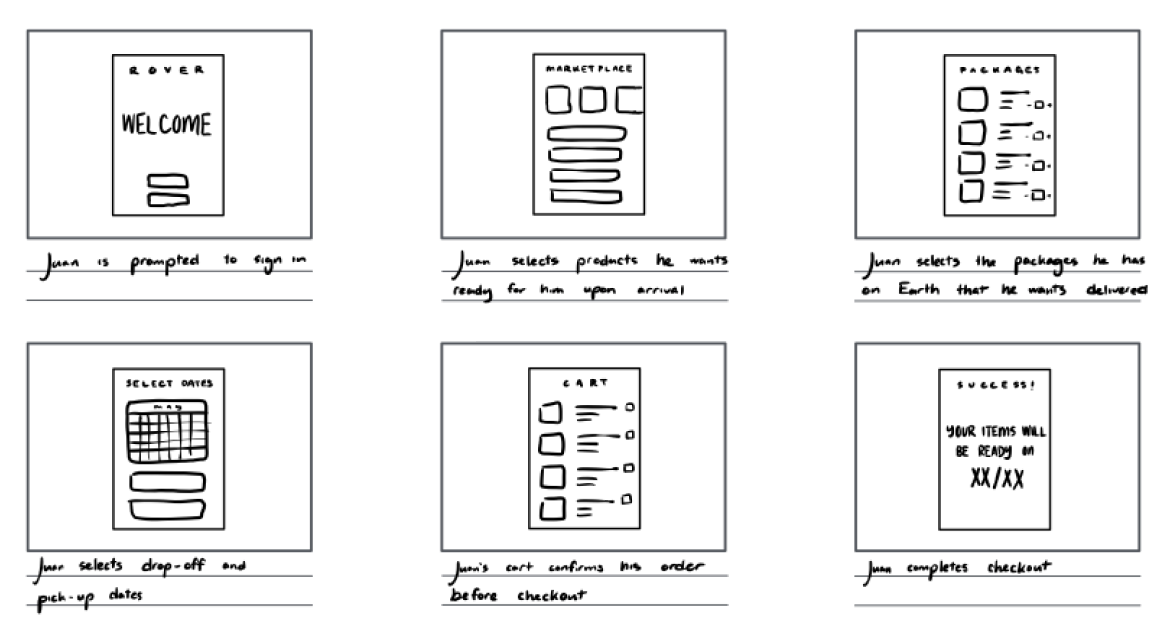 ROVER
WELCOME
Juan is prompted to sign in
MARKETPLACE
Juan selects products he wants
ready for him upon arrival
PACKAGES
Juan selects the packages he has
on Earth that he wants delivered
SELECT DATES
MAY
Juan selects drop-off and
pick-up dates
CART
Juan's cart confirms his order
before checkout
SUCCESS!
YOUR ITEMS WILL
BE READY ON
XX/XX
Juan completes checkout